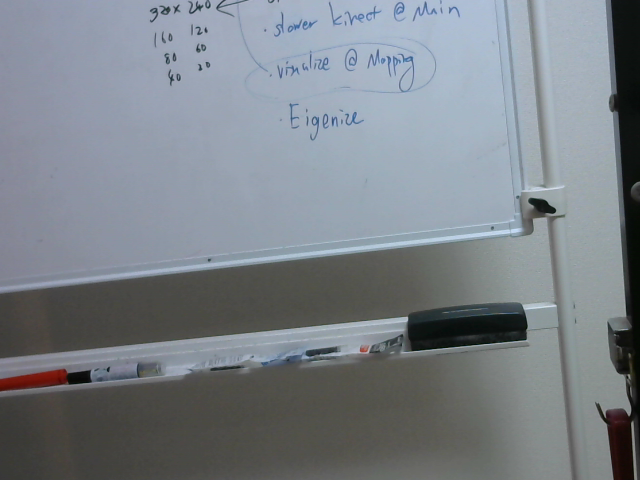 320 x 240
160 120
80 60
40 20
· slower kinect @ Main
· visulize @ Mapping
· Eigenize